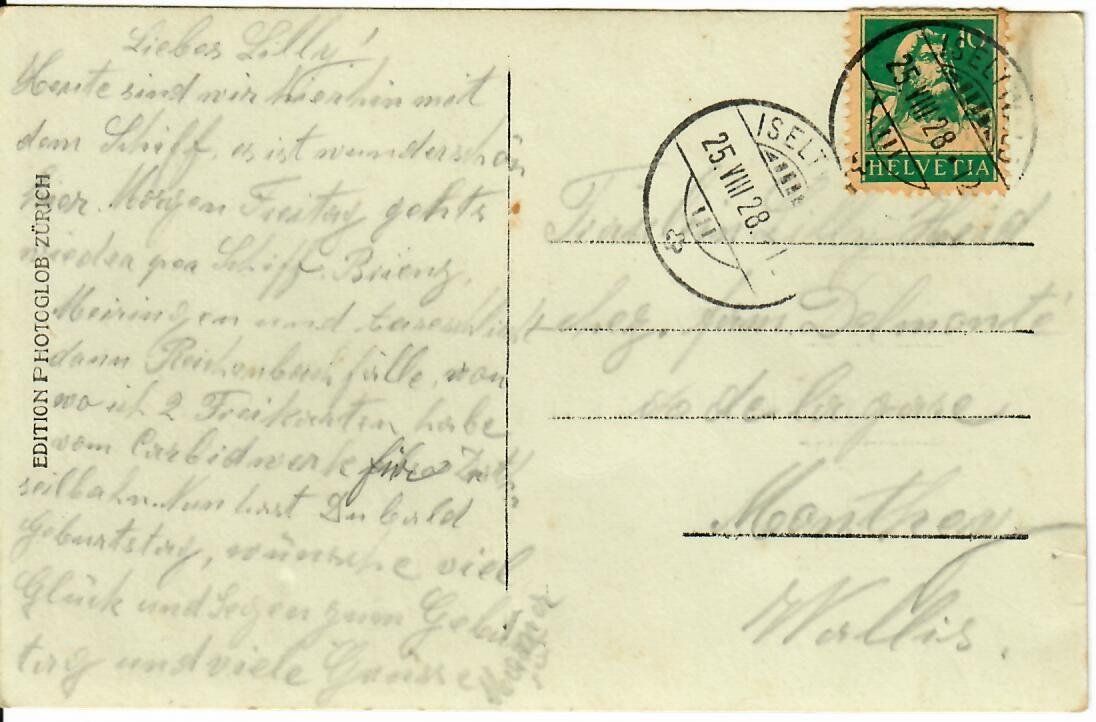 Liebes Lilly!
Heute sind wir hierhin mit
dem Schiff, es ist wunderschön
hier. Morgen Freitag gehts
wieder per Schiff. Brienz,
Meiringen und
dann Reichenbachfälle, von
wo ich 2 Freikarten habe
vom Carbidwerk für
seilbahn. Nun hast Du bald
Geburtstag, wünsche viel
Glück und Segen zum Geburts
tag und viele Grüsse
EDITION PHOTOGLOB ZÜRICH
10
HELVETIA
ISELTWALD
25.VIII 28.
ISELT
25.VIII 28.
Lilly
chez Delmonté
de la gare
Monthey
Wallis.